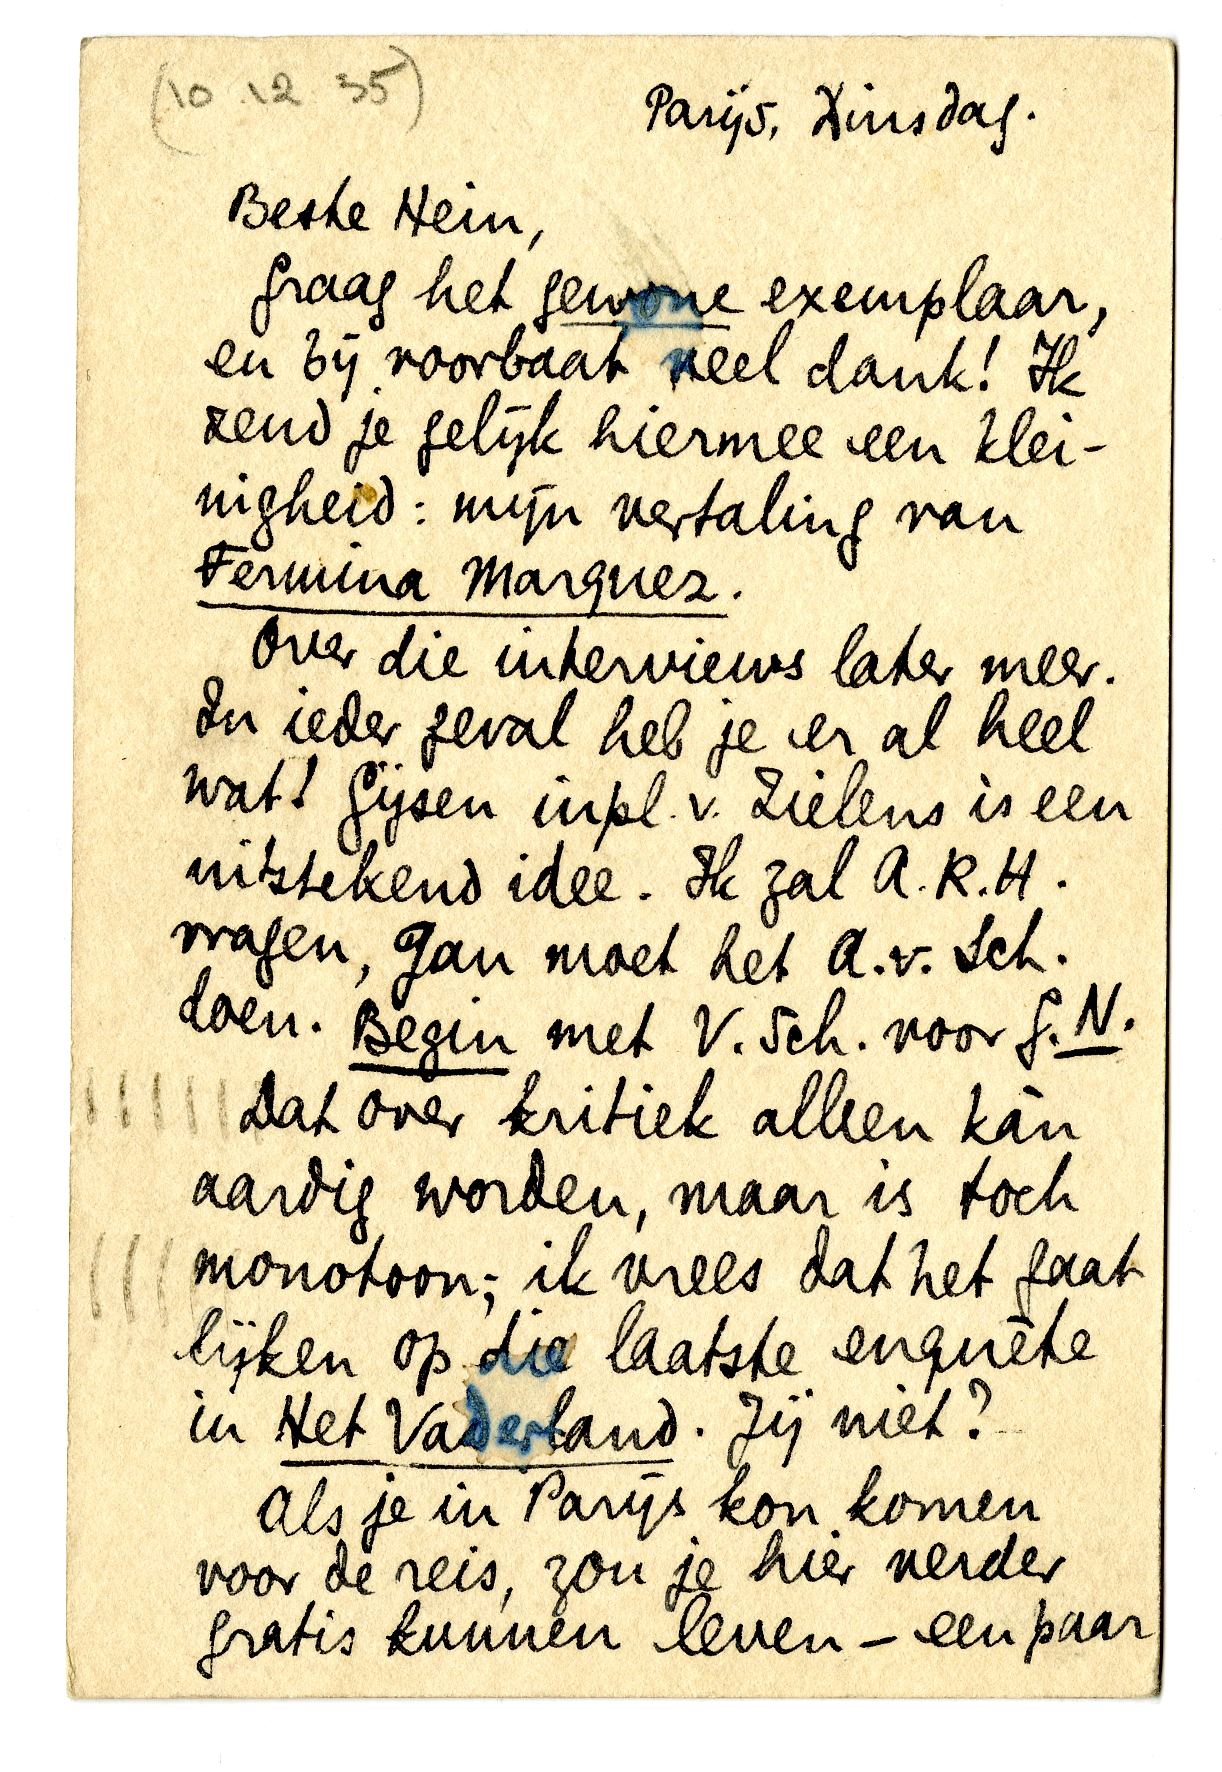 (10.12.35)
Parijs, Dinsdag.
Beste Hein,
Graag het gewone exemplaar,
en bij voorbaat veel dank! Ik
zend je gelijk hiermee een klei-
nigheid: mijn vertaling van
Fermina Marquez.
Over die interviews later meer.
In ieder geval heb je er al heel
wat! Gijsen inpl. v. Zielens is een
uitstekend idee. Ik zal A.R.H.
vragen, Jan moet het A.v.Sch.
doen. Begin met V.Sch. voor G.N.
Dat over kritiek alleen kàn
aardig worden, maar is toch
monotoon; ik vrees dat het gaat
lijken op die laatste enquête
in Het Vaderland. Jij niet?
Als je in Parijs kon komen
voor de reis, zou je hier verder
gratis kunnen leven – een paar